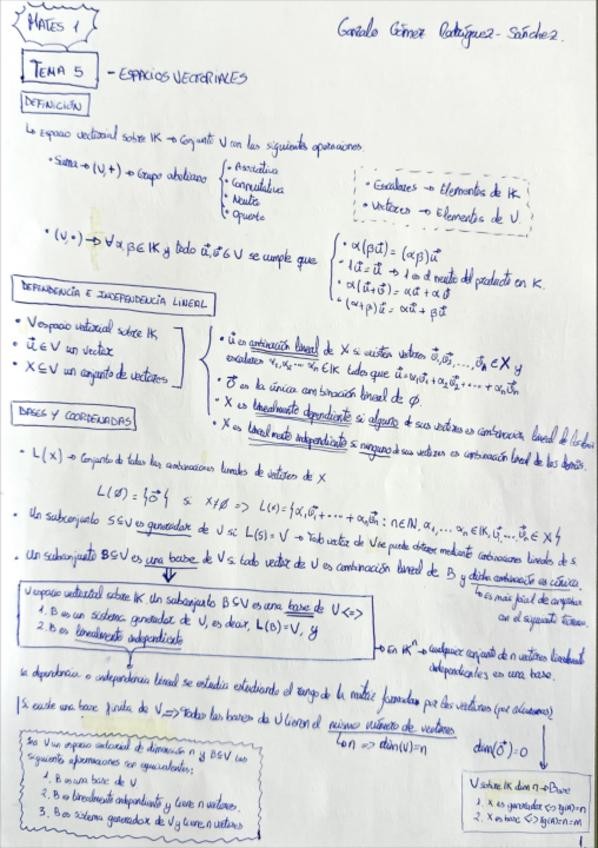 MATES 1
Gonzalo Gómez Rodríguez-Sánchez.
TEMA 5 - ESPACIOS VECTORIALES
DEFINICIÓN
↳ Espacio vectorial sobre IK → Conjunto V con las siguientes operaciones.
• Suma → (V,+) → Grupo abeliano
• Asociativa
• Conmutativa
• Neutro
• Opuesto
• Escalares → Elementos de IK
• Vectores → Elementos de V.
• (V,·) → ∀α,β∈IK y todo u⃗,v⃗∈V se cumple que
• α(βu⃗) = (αβ)u⃗
• 1u⃗ = u⃗ → 1 es el neutro del producto en K.
• α(u⃗+v⃗) = αu⃗ + αv⃗
• (α+β)u⃗ = αu⃗ + βu⃗
DEPENDENCIA E INDEPENDENCIA LINEAL
• V espacio vectorial sobre IK
• u⃗∈V un vector
• X⊆V un conjunto de vectores
• u⃗ es combinación lineal de X si existen vectores v⃗1, v⃗2, ..., v⃗n ∈ X y
escalares α1, α2 ... αn ∈ IK tales que u⃗ = α1v⃗1 + α2v⃗2 + ... + αnv⃗n
• 0⃗ es la única combinación lineal de ∅.
• X es linealmente dependiente si alguno de sus vectores es combinación lineal de los demás
• X es linealmente independiente si ninguno de sus vectores es combinación lineal de los demás.
BASES Y COORDENADAS
• L(X) → Conjunto de todas las combinaciones lineales de vectores de X
L(∅) = {0⃗} si X≠∅ => L(X) = {α1v⃗1 + ... + αnv⃗n : n∈IN, α1, ... αn ∈ IK, v⃗1 ... v⃗n ∈ X}
• Un subconjunto S⊆V es generador de V si L(S) = V → Todo vector de V se puede obtener mediante combinaciones lineales de S.
• Un subconjunto B⊆V es una base de V si todo vector de V es combinación lineal de B y dicha combinación es única.
↳ es más fácil de comprobar
con el siguiente teorema.
V espacio vectorial sobre IK. Un subconjunto B⊆V es una base de V <=>
1. B es un sistema generador de V, es decir, L(B)=V, y
2. B es linealmente independiente
→ En IKⁿ → cualquier conjunto de n vectores linealmente
independientes es una base.
La dependencia o independencia lineal se estudia estudiando el rango de la matriz formada por los vectores (por columnas)
Si existe una base finita de V => Todas las bases de V tienen el mismo número de vectores
↳ n => dim(V)=n
dim(0⃗)=0
Sea V un espacio vectorial de dimensión n y B⊆V las
siguientes afirmaciones son equivalentes:
1. B es una base de V
2. B es linealmente independiente y tiene n vectores.
3. B es sistema generador de V y tiene n vectores
V sobre IK dim n → Base
1. X es generador <=> rg(A)=n
2. X es base <=> rg(A)=n=m
1